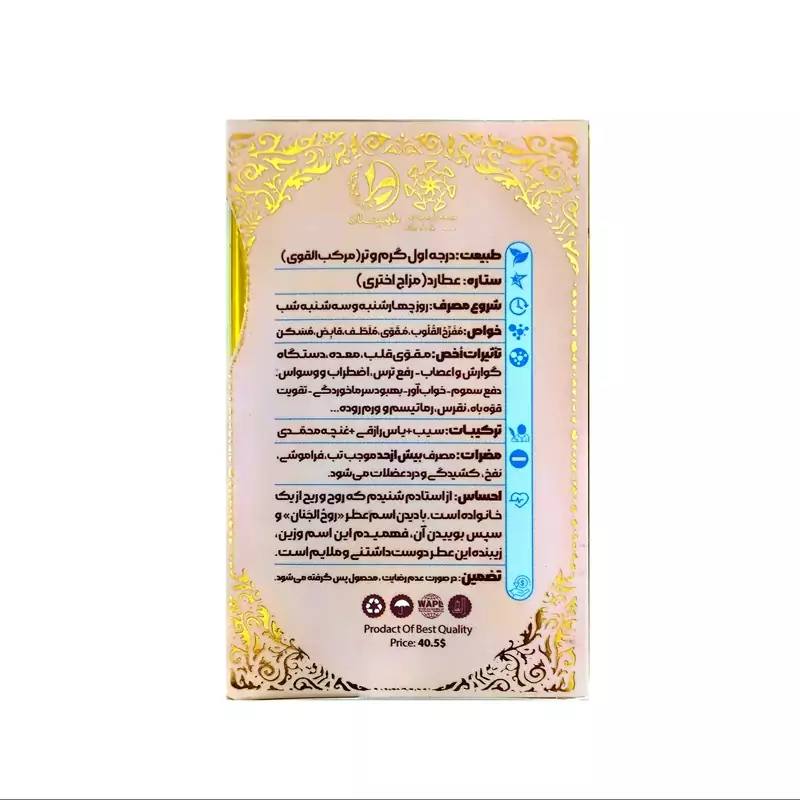 طبیعت: درجه اول گرم و تر (مرکب القوی)
ستاره: عطارد (مزاج اختری)
شروع مصرف: روز چهارشنبه و سه شنبه شب
خواص: مُفَرّحُ القُلوب، مُقَوّی، مُلَطّف، قابِض، مُسَکن
تأثیرات أخص: مقوّی قلب، معده، دستگاه
گوارش و اعصاب- رفع ترس، اضطراب و وسواس،
دفع سموم- خواب آور- بهبود سرماخوردگی- تقویت
قوّه باه، نقرس، رماتیسم و ورم روده...
ترکیبات: سیب+یاس رازقی+غنچه محمّدی
مضرات: مصرف بیش از حد موجب تب، فراموشی،
نفخ، کشیدگی و درد عضلات می‌شود.
احساس: از استادم شنیدم که روح و ریح از یک
خانواده است. با دیدن اسم عطر «روحُ الجَنان» و
سپس بوییدن آن، فهمیدم این اسم وزین،
زیبنده این عطر دوست داشتنی و ملایم است.
تضمین: در صورت عدم رضایت، محصول پس گرفته می‌شود.
WAPE
Prodact Of Best Quality
Price: 40.5$